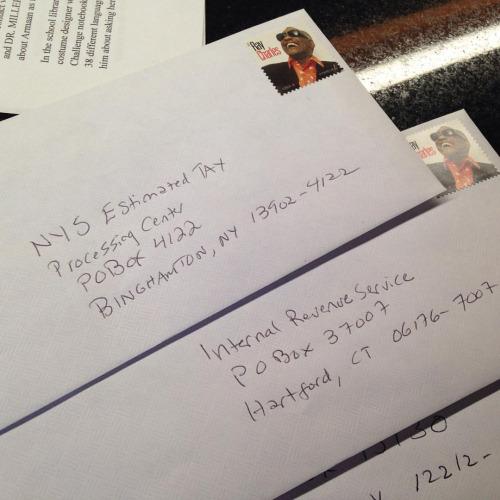 and DR. MILLER
about Armaan as
In the school libra
costume designer w
Challenge notebook
38 different languag
him about asking her
Ray
Charles
NYS Estimated Tax
Processing Center
PO Box 4122
BINGHAMTON, NY 13902-4122
Ray
Charles
Internal Revenue Service
PO Box 37007
Hartford, CT 06176-7007
12212-